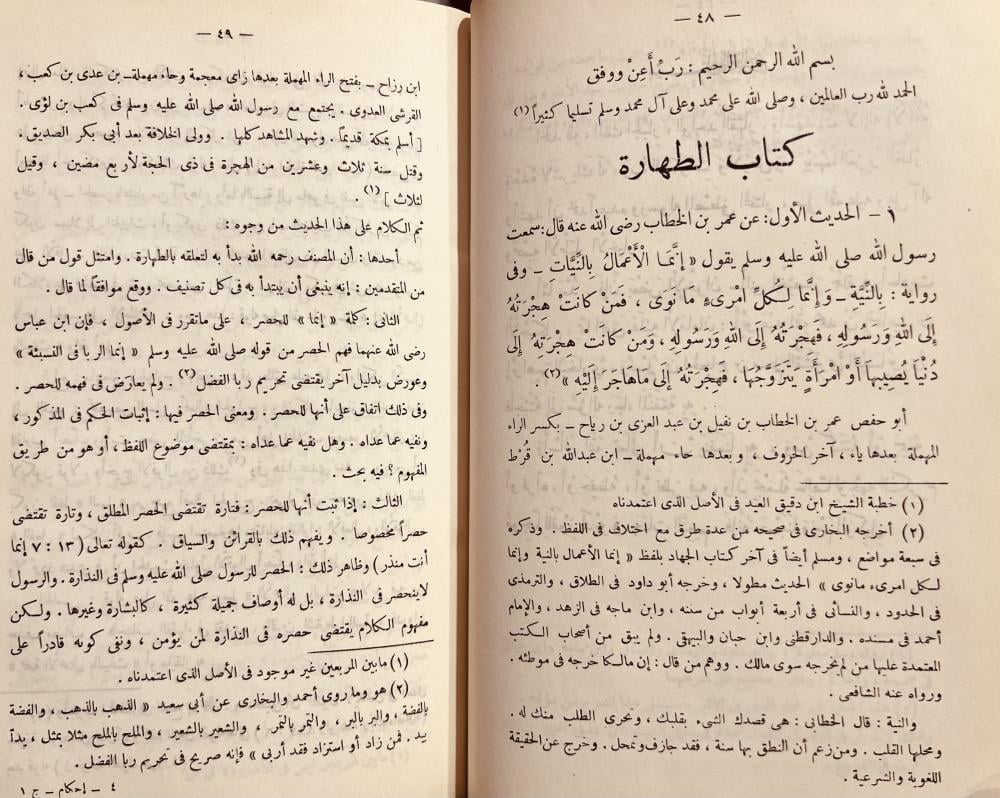 — ٤٨ —
بسم الله الرحمن الرحيم : رَبِّ أَعِنْ ووفق
الحمد لله رب العالمين ، وصلى الله على محمد وعلى آل محمد وسلم تسليما كثيراً (١)
كتاب الطهارة
١ – الحديث الأول: عن عمر بن الخطاب رضى الله عنه قال: سمعت
رسول الله صلى الله عليه وسلم يقول « إِنَّمَا الْأَعْمَالُ بِالنِّيَّاتِ – وفى
رواية : بِالنِّيَّةِ – وَإِنَّمَا لِكُلِّ امْرِىءٍ مَا نَوَى ، فَمَنْ كَانَتْ هِجْرَتُهُ
إِلَى اللهِ وَرَسُولِهِ ، فَهِجْرَتُهُ إِلَى اللهِ وَرَسُولِهِ ، وَمَنْ كَانَتْ هِجْرَتُهِ إِلَى
دُنْيَا يُصِيبُهَا أَوْ امْرَأَةٍ يَتَزَوَّجُهَا ، فَهِجْرَتُهُ إِلَى مَا هَاجَرَ إِلَيْهِ » (٢) .
أبو حفص عمر بن الخطاب بن نفيل بن عبد العزى بن رياح – بكسر الراء
المهملة بعدها ياء ، آخر الحروف ، وبعدها حاء مهملة – ابن عبدالله بن قُرْط
(١) خطبة الشيخ ابن دقيق العيد فى الأصل الذى اعتمدناه
(٢) أخرجه البخارى فى صحيحه من عدة طرق مع اختلاف فى اللفظ . وذكره
فى سبعة مواضع ، ومسلم أيضاً فى آخر كتاب الجهاد بلفظ « إنما الأعمال بالنية وإنما
لكل امرىء مانوى » الحديث مطولا ، وخرجه أبو داود فى الطلاق ، والترمذى
فى الحدود ، والنسائى فى أربعة أبواب من سننه ، وابن ماجه فى الزهد ، والإمام
أحمد فى مسنده . والدارقطنى وابن حبان والبيهقى . ولم يبق من أصحاب الكتب
المعتمدة عليها من لم يخرجه سوى مالك . ووهم من قال : إن مالكا خرجه فى موطئه .
ورواه عنه الشافعى .
والنية : قال الخطابى : هى قصدك الشىء بقلبك ، وتحرى الطلب منك له .
ومحلها القلب . ومن زعم أن النطق بها سنة ، فقد جازف وتمحل . وخرج عن الحقيقة
اللغوية والشرعية .
— ٤٩ —
ابن رزاح – بفتح الراء المهملة بعدها زاى معجمة وحاء مهملة – بن عدى بن كعب ،
القرشى العدوى . يجتمع مع رسول الله صلى الله عليه وسلم فى كعب بن لؤى .
[ أسلم بمكة قديماً . وشهد المشاهد كلها . وولى الخلافة بعد أبى بكر الصديق .
وقتل سنة ثلاث وعشرين من الهجرة فى ذى الحجة لأربع مضين ، وقيل
لثلاث ] (١) .
ثم الكلام على هذا الحديث من وجوه :
أحدها : أن المصنف رحمه الله بدأ به لتعلقه بالطهارة . وامتثل قول من قال
من المتقدمين : إنه ينبغى أن يبتدأ به فى كل تصنيف . ووقع موافقاً لما قال .
الثانى : كلمة « إنما » للحصر ، على ماتقرر فى الأصول ، فإن ابن عباس
رضى الله عنهما فهم الحصر من قوله صلى الله عليه وسلم « إنما الربا فى النسيئة »
وعورض بدليل آخر يقتضى تحريم ربا الفضل (٢) . ولم يعارَض فى فهمه للحصر .
وفى ذلك اتفاق على أنها للحصر . ومعنى الحصر فيها : إثبات الحكم فى المذكور ،
ونفيه عما عداه . وهل نفيه عما عداه : بمقتضى موضوع اللفظ ، أو هو من طريق
المفهوم ؟ فيه بحث .
الثالث : إذا ثبت أنها للحصر : فتارة تقتضى الحصر المطلق ، وتارة تقتضى
حصراً مخصوصا . ويفهم ذلك بالقرائن والسياق . كقوله تعالى ( ١٣ : ٧ إنما
أنت منذر ) وظاهر ذلك : الحصر للرسول صلى الله عليه وسلم فى النذارة . والرسول
لاينحصر فى النذارة ، بل له أوصاف جميلة كثيرة ، كالبشارة وغيرها . ولكن
مفهوم الكلام يقتضى حصره فى النذارة لمن يؤمن ، ونفى كونه قادراً على
(١) مابين المربعين غير موجود فى الأصل الذى اعتمدناه .
(٢) هو وما روى أحمد والبخارى عن أبى سعيد « الذهب بالذهب ، والفضة
بالفضة ، والبر بالبر ، والتمر بالتمر ، والشعير بالشعير ، والملح بالملح مثلا بمثل ، يداً
بيد . فمن زاد أو استزاد فقد أربى » فإنه صريح فى تحريم ربا الفضل .
٤ – إحكام – ج ١